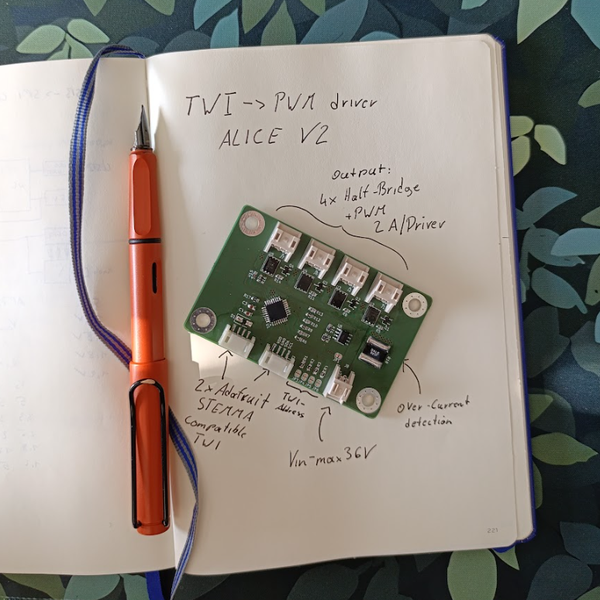 TWI -> PWM driver
ALICE V2
Output:
4x Half-Bridge
+PWM
2 A/Driver
2x Adafruit
STEMMA
Compatible
TWI
TWI-
Address
Vin-max 36V
Over-Current
detection
221